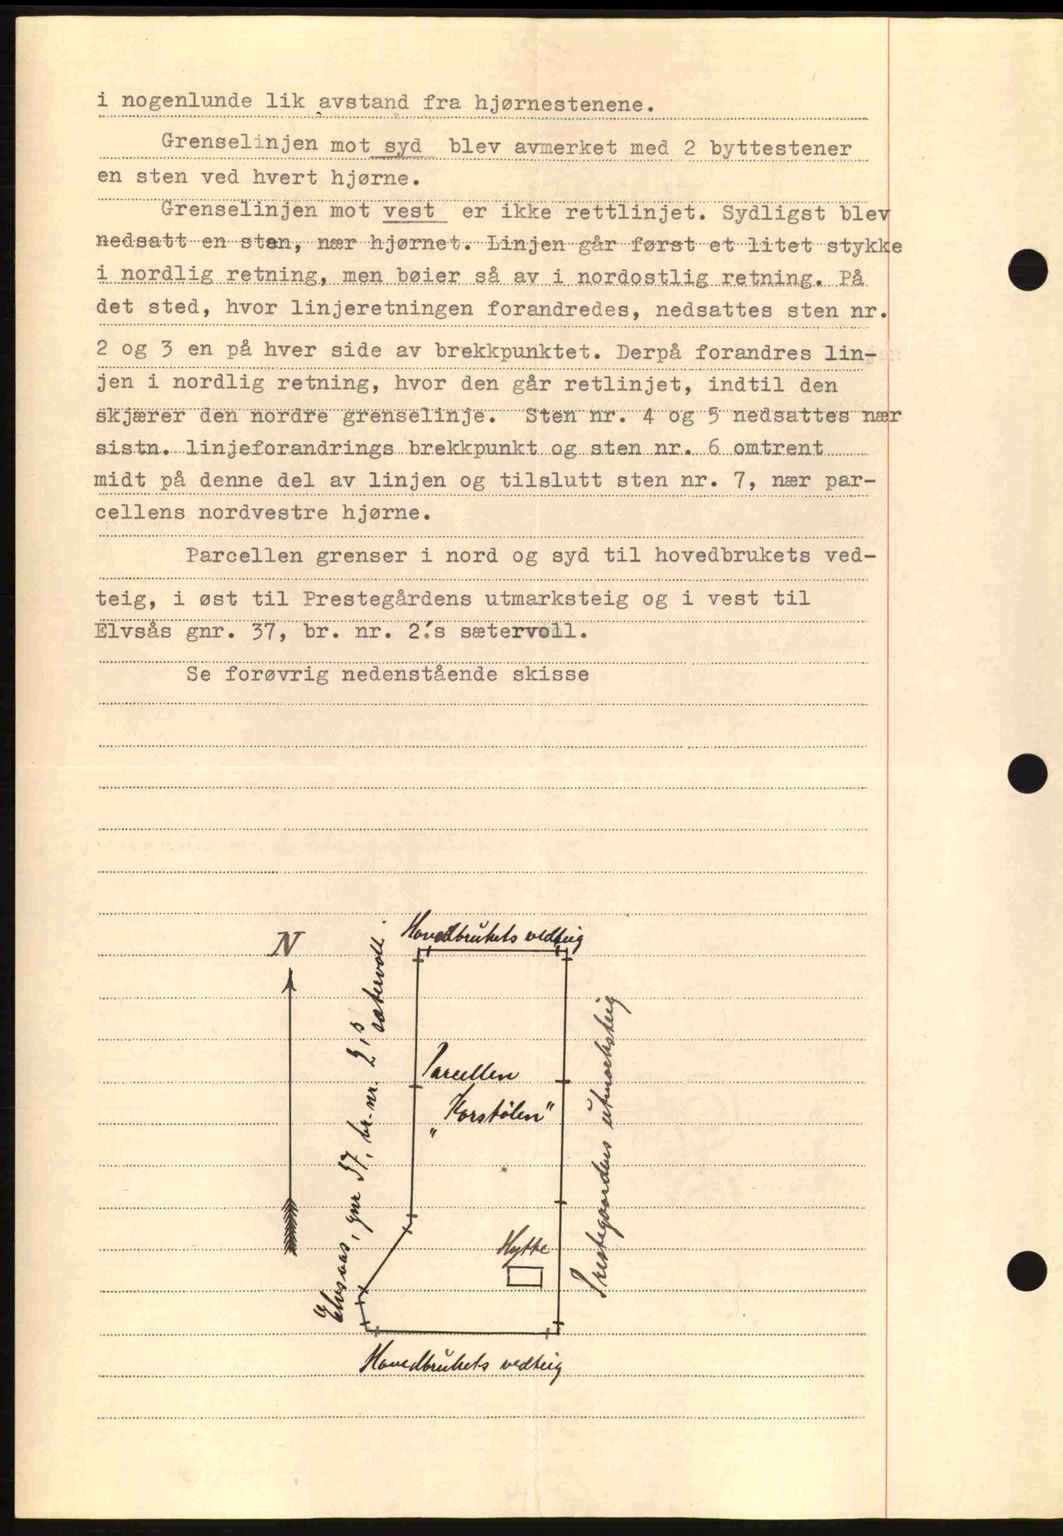 i nogenlunde lik avstand fra hjørnestenene.
Grenselinjen mot syd blev avmerket med 2 byttestener
en sten ved hvert hjørne.
Grenselinjen mot vest er ikke rettlinjet. Sydligst blev
nedsatt en sten, nær hjørnet. Linjen går først et litet stykke
i nordlig retning, men bøier så av i nordostlig retning. På
det sted, hvor linjeretningen forandredes, nedsattes sten nr.
2 og 3 en på hver side av brekkpunktet. Derpå forandres lin-
jen i nordlig retning, hvor den går retlinjet, indtil den
skjærer den nordre grenselinje. Sten nr. 4 og 5 nedsattes nær
sistn. linjeforandrings brekkpunkt og sten nr. 6 omtrent
midt på denne del av linjen og tilslutt sten nr. 7, nær par-
cellens nordvestre hjørne.
Parcellen grenser i nord og syd til hovedbrukets ved-
teig, i øst til Prestegårdens utmarksteig og i vest til
Elvsås gnr. 37, br. nr. 2's sætervoll.
Se forøvrig nedenstående skisse
N
Hovedbrukets vedteig
Elvsaas, gnr 37, br. nr. 2's
sætervoll.
Parcellen
"Korstølen"
Prestegaardens utmarksteig
Hytte
Hovedbrukets vedteig